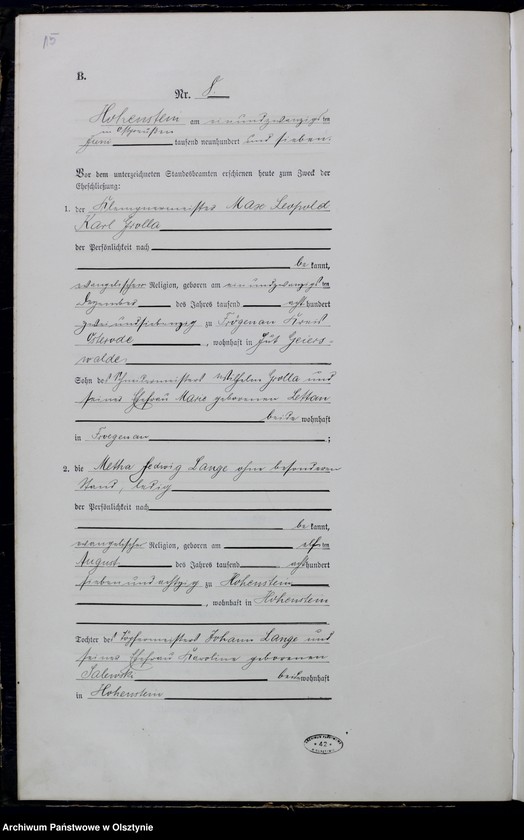 15
B.
Nr. 8.
Hohenstein am einundzwanzigsten
in Ostpreußen
Juni tausend neunhundert und sieben.
Vor dem unterzeichneten Standesbeamten erschienen heute zum Zweck der
Eheschließung:
1. der Klempnermeister Max Leopold
Karl Grolla
der Persönlichkeit nach
be kannt,
evangelischer Religion, geboren am einundzwanzigsten
Dezember des Jahres tausend acht hundert
zweiundsiebenzig zu Frögenau Kreis
Osterode, wohnhaft in Gut Geiers-
walde,
Sohn des Schneidermeisters Wilhelm Grolla und
seiner Ehefrau Marie geborenen Lettau
beide wohnhaft
in Froegenau;
2. die Metha Hedwig Lange ohne besonderen
Stand, ledig
der Persönlichkeit nach
be kannt,
evangelischer Religion, geboren am elften
August des Jahres tausend acht hundert
sieben und achtzig zu Hohenstein
, wohnhaft in Hohenstein
Tochter des Töpfermeisters Johann Lange und
seiner Ehefrau Karoline geborenen
beide wohnhaft
in Hohenstein
42
Archiwum Państwowe w Olsztynie